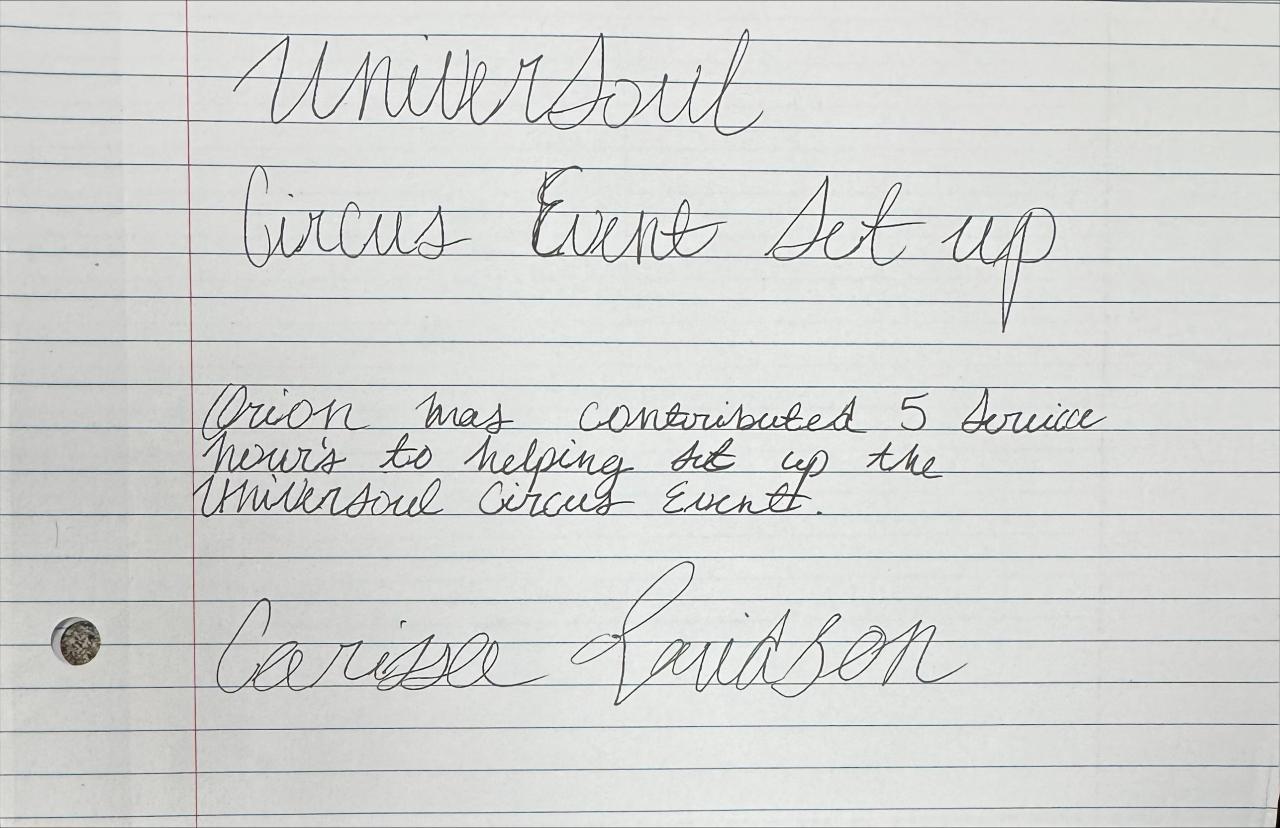 UniverSoul
Circus Event Set up
Orion has contributed 5 Service
hour's to helping set up the
UniverSoul Circus Event.
Carissa Davidson